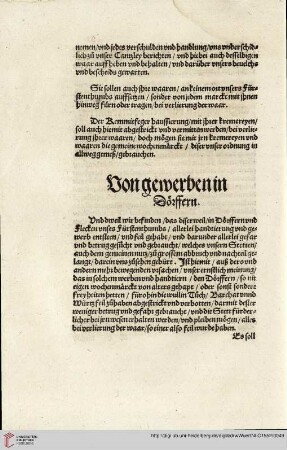 nemen/ und jedes verschulden und handlung/ uns underschid-
lich zů unser Cantzley berichten/ und hiebei auch desselbigen
waar auffheben und behalten/ und darüber unsers bevelchs
und bescheids gewarten.
Sie sollen auch ihre waaren/ an keinem ort unsers Für-
stenthumbs auffsetzen/ sonder von jdem marckt mit ihnen
hinweg füren oder tragen/ bei verlierung der waar.
Der Kemmitfeger haussierung/ mit ihrer kremereyen/
soll auch hiemit abgestrickt und vermitten werden/ bei verlie-
rung ihrer waaren/ doch mögen sie mit jren kremereyen und
waaren die gemein wochenmärckt/ diser unser ordnung in
allweg gemeß/ gebrauchen.
Von gewerben in
Dörffern.
Und dweil wir befunden/ das diser weil/ in Dörffern und
Flecken unsers Fürstenthumbs/ allerlei handtierung und ge-
werb entsteen/ und feil gehabt/ und darunder allerlei gefar
und betrug gesůcht und gebraucht/ welches unsern Stetten/
auch dem gemeinen man/ zů grossem abbruch und nachteil ge-
langt/ daren uns zůsehen gebürt. Ist hiemit/ auß dero und
andern mehr bewegenden ursachen/ unser ernstlich meinung/
das in solchem werben und handtieren/ den Dörffern/ so nit
eigen wochenmärckt von alters gehapt/ oder sonst sonder
freyheiten hetten/ fürohin die wullin Tůch/ Barchat und
Würtz feil zůhaben abgestrickt und verbotten/ darmit desto
weniger betrug und gefahr gebraucht/ und die Stett fürder-
licher bei jren wesen erhalten werden/ und pleiben mögen/ alles
bei verlierung der waar/ so einer also feil wurde haben.
Es soll